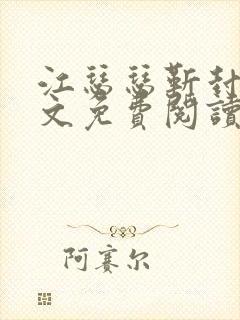 江瑟瑟靳封
文免費閱讀
阿賽尔